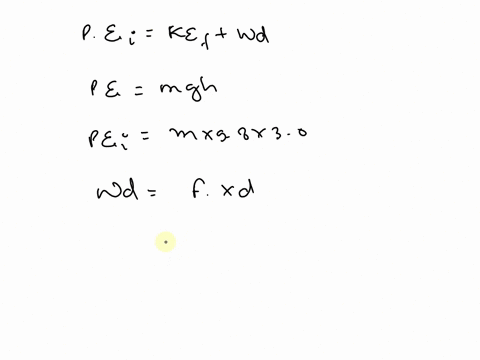 P. Ei = KEf + Wd
PE = mgh
PEi = m x 9 8 x 3. 0
Wd = f. x d